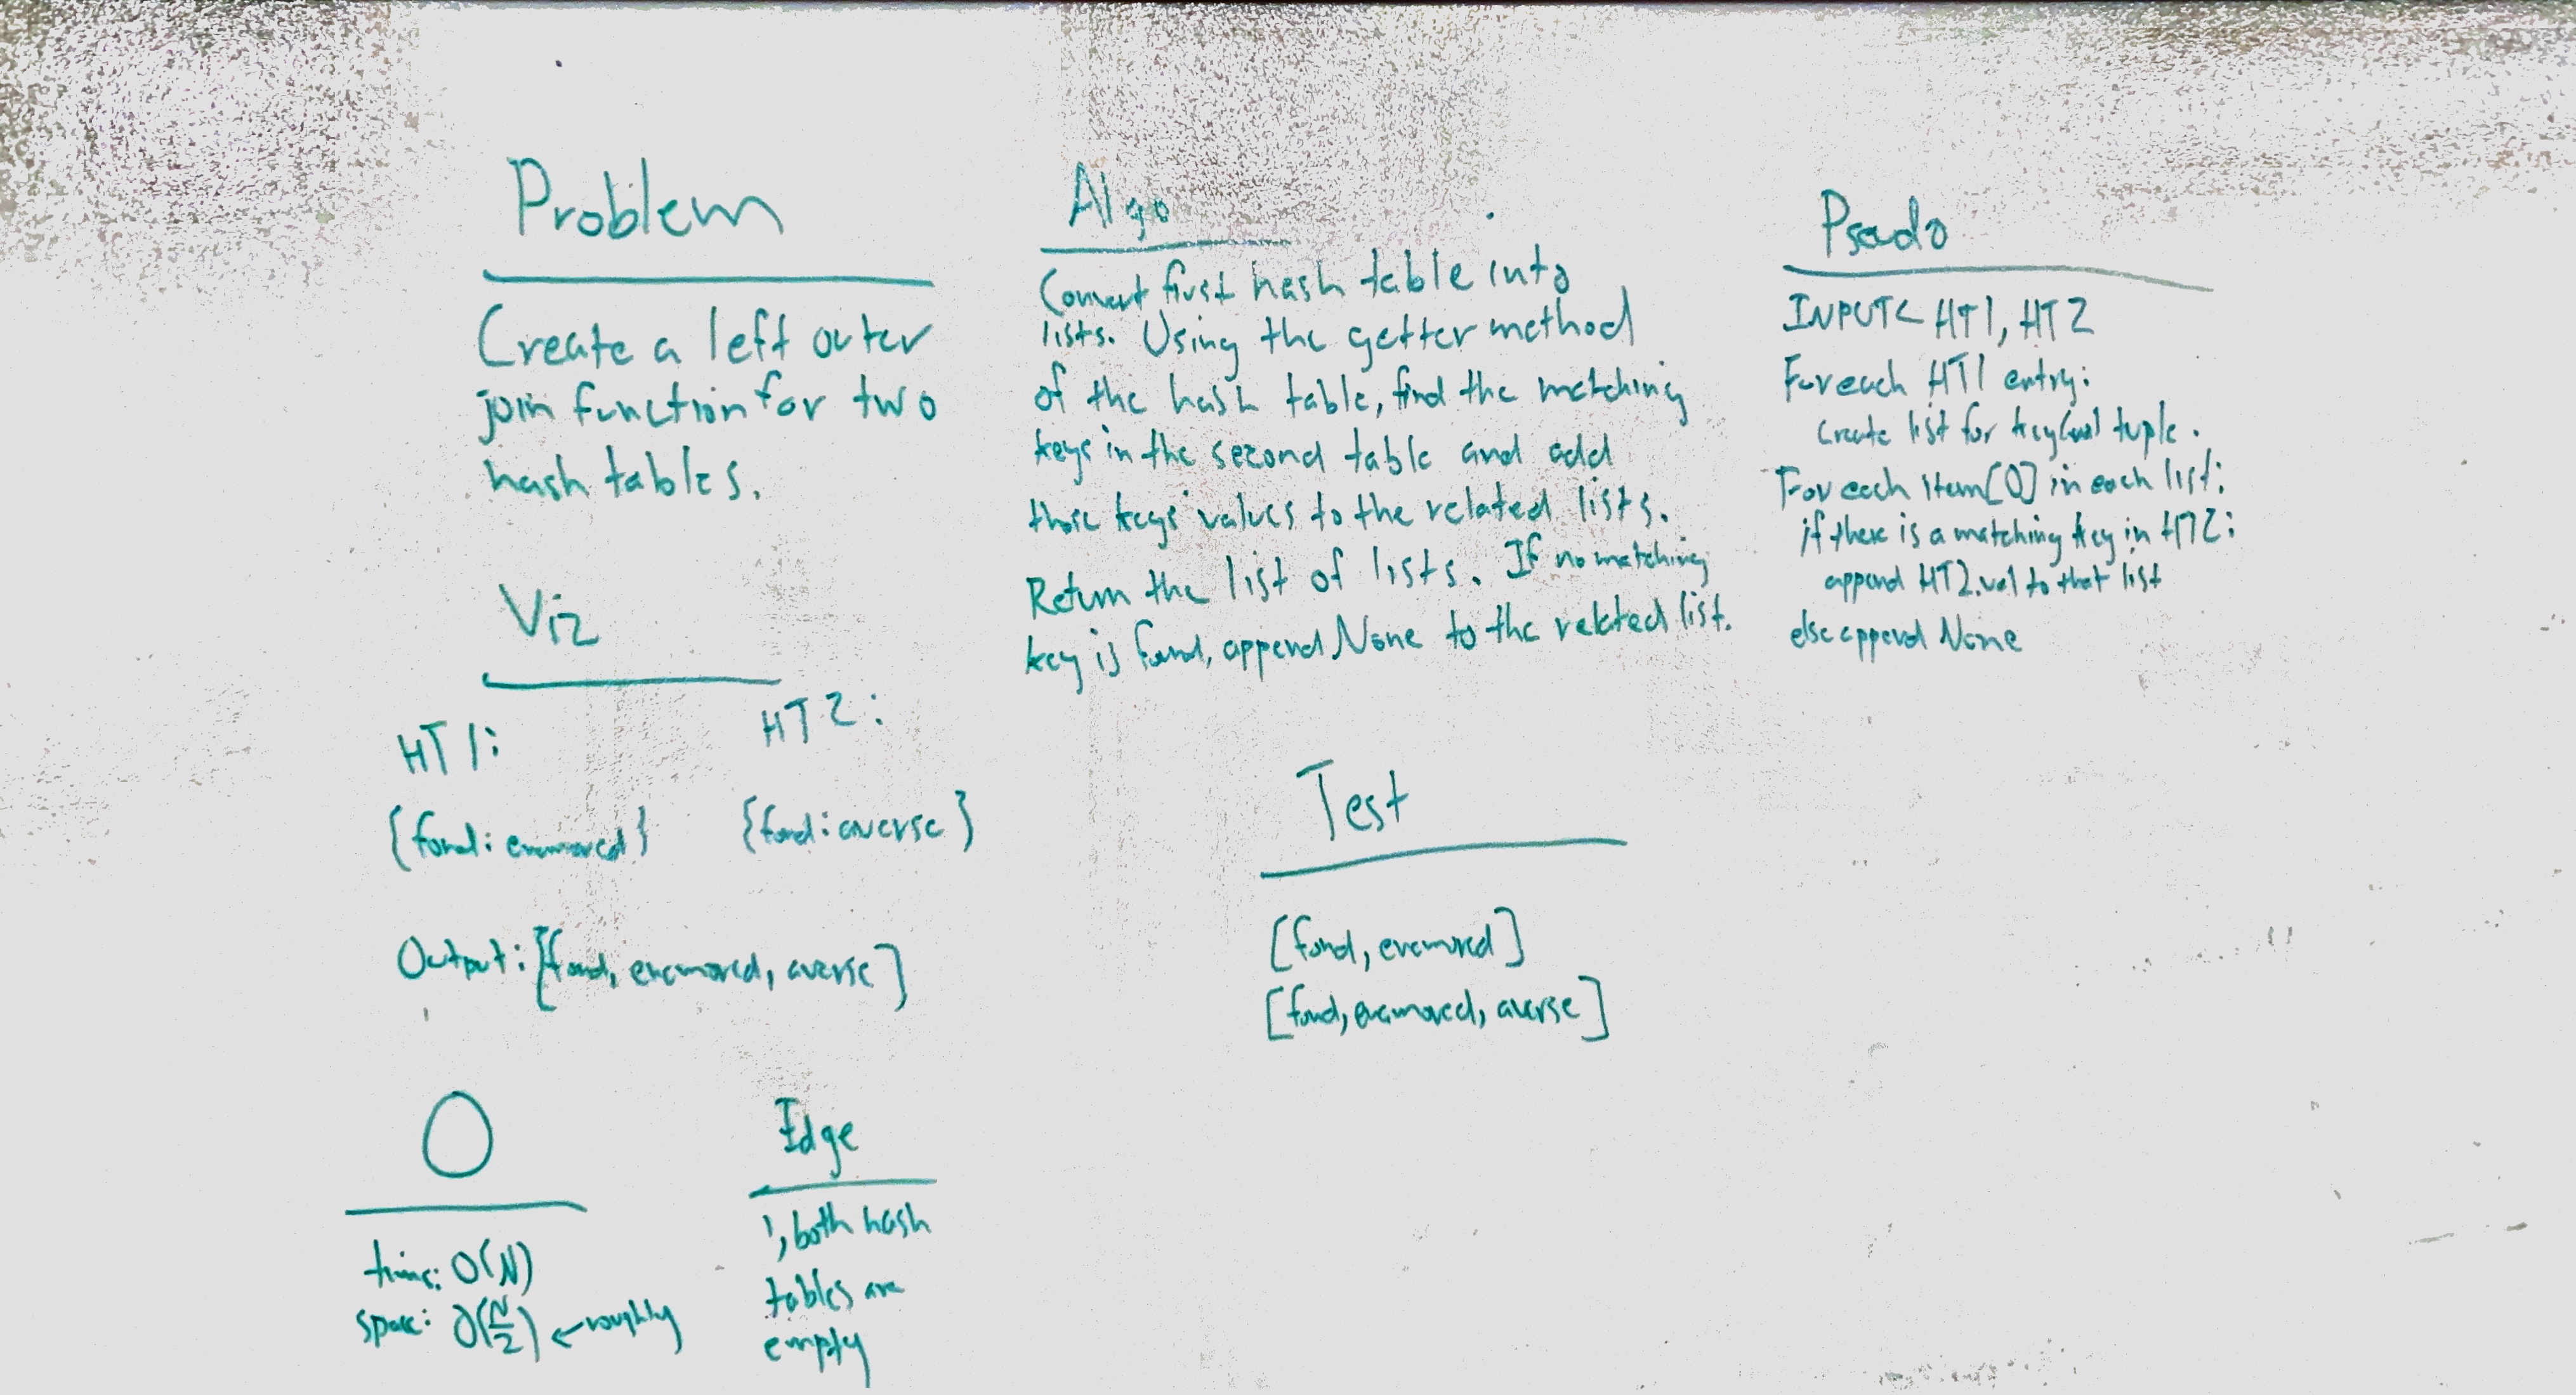 Problem
Create a left outer
join function for two
hash tables.
Viz
HT1:
HT2:
{fond: enamored}
{fond: averse}
Output: [fond, enamored, averse]
O
time: O(N)
space: O(N/2) ← roughly
Edge
1, both hash
tables are
empty
Algo
Convert first hash table into
lists. Using the getter method
of the hash table, find the matching
keys in the second table and add
those keys values to the related lists.
Return the list of lists. If no matching
key is found, append None to the related list.
Test
[fond, enamored]
[fond, enamored, averse]
Psudo
INPUT< HT1, HT2
For each HT1 entry:
create list for key/val tuple.
For each item[0] in each list:
if there is a matching key in HT2:
append HT2.val to that list
else append None